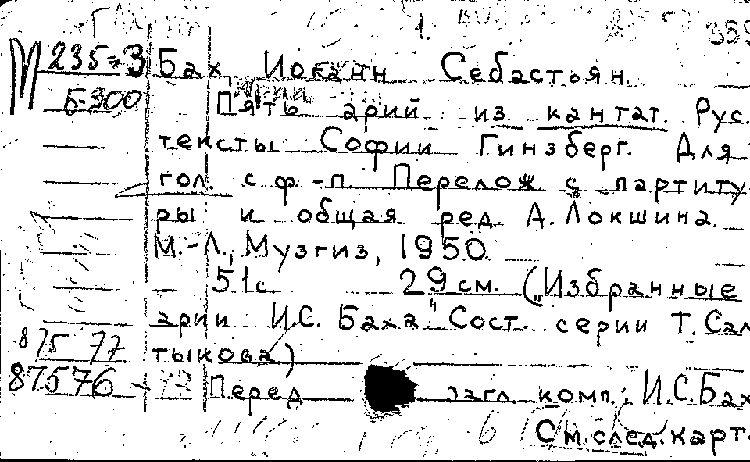 М 235-3 Бах, Иоканн Себастьян
Б-300 Пять арий из кантат. Рус.
тексты Софии Гинзберг. Для
гол. с ф-п. Перелож с партиту
ры и общая ред А. Локшина.
М.-Л., Музгиз, 1950
51с 29 см. („Избранные
арии И.С. Баха" Сост. серии Т. Сал
875 77 тыкова)
87576 Перед загл. комп.: И.С. Бах
См. след. карт.